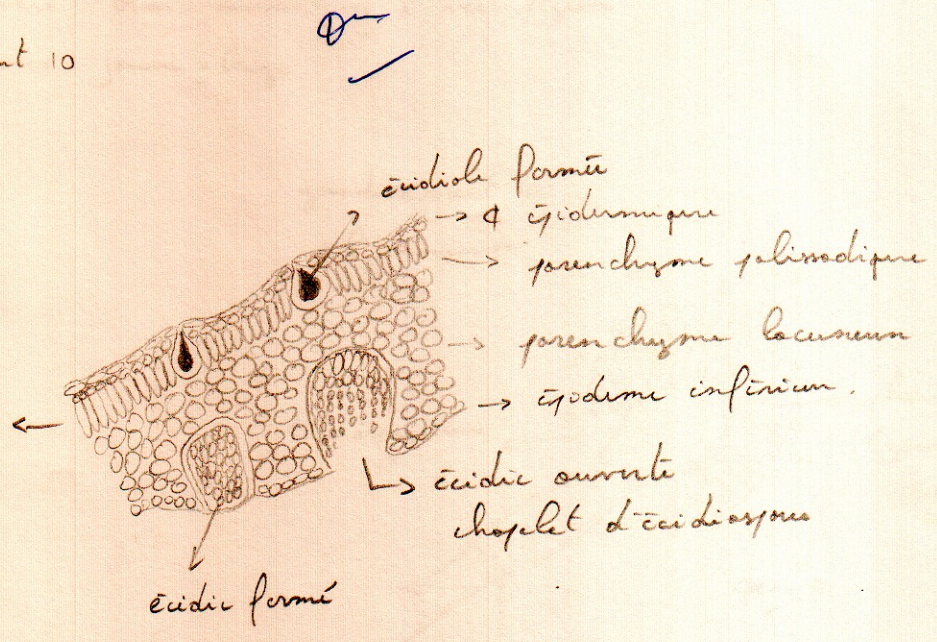 nt 10
écidiole formée
¢ épidermique
parenchyme palissadique
parenchyme lacuneux
épiderme inférieur.
écidie ouverte
chapelet d'écidiospores
écidie formé